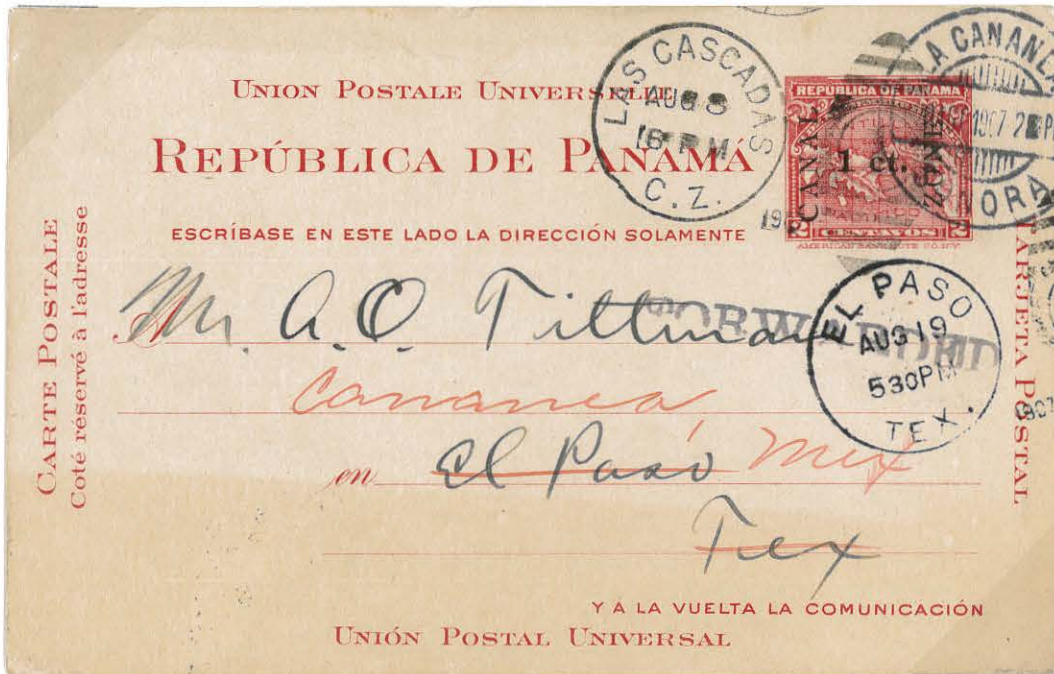 UNION POSTALE UNIVERSELLE
REPÚBLICA DE PANAMÁ
ESCRÍBASE EN ESTE LADO LA DIRECCIÓN SOLAMENTE
CARTE POSTALE
Coté réservé à l'adresse
LAS CASCADAS
AUG 8
PM
C. Z.
REPÚBLICA DE PANAMA
CANAL
1 ct.
ZONE
2 CENTAVOS 2
AMERICAN BANK NOTE CO. N.Y.
LA CANANEA
1907
TARJETA POSTAL
FORWARDED
EL PASO
AUG 19
530PM
TEX.
1907
Mr. A. O. Tittman
Cananea
en El Paso Mex
Tex
Y A LA VUELTA LA COMUNICACIÓN
UNIÓN POSTAL UNIVERSAL